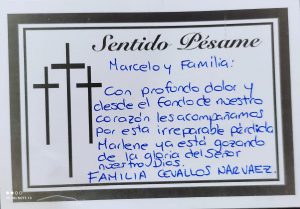 Sentido Pésame
Marcelo y Familia:
Con profundo dolor y
desde el fondo de nuestro
corazón les acompañamos
por esta irreparable pérdida
Marlene ya está gozando
de la gloria del Señor
nuestro Dios.
FAMILIA CEVALLOS NARVAEZ.